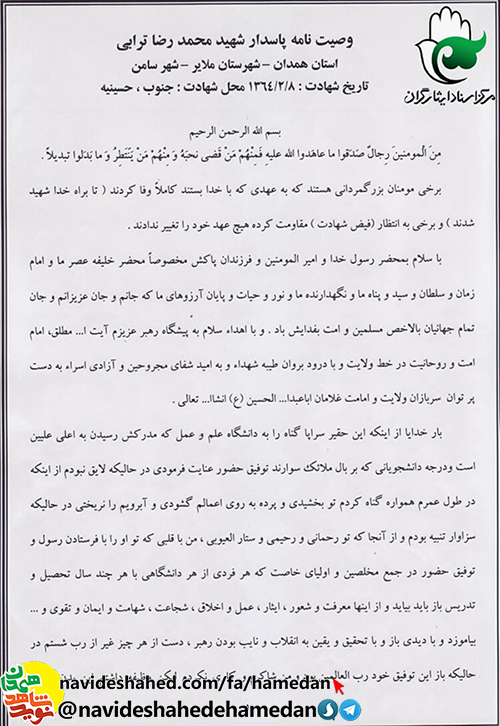 وصیت نامه پاسدار شهید محمد رضا ترابی
استان همدان – شهرستان ملایر – شهر سامن
تاریخ شهادت : ۱۳۶٤/۲/۸ محل شهادت : جنوب ، حسینیه
مرکز اسناد ایثارگران
بسم الله الرحمن الرحیم
مِنَ الْمومنینَ رِجالٌ صَدَقوا ما عاهَدوا الله علیهِ فَمِنْهُمْ مَنْ قَضی نحبَهُ وَ مِنْهُمْ مَنْ یَنْتَطِرُ وَ ما بَدلوا تبدیلاً .
برخی مومنان بزرگمردانی هستند که به عهدی که با خدا بستند کاملاً وفا کردند ( تا براه خدا شهید
شدند ) و برخی به انتظار (فیض شهادت ) مقاومت کرده هیچ عهد خود را تغییر ندادند .
با سلام بمحضر رسول خدا و امیر المومنین و فرزندان پاکش مخصوصاً محضر خلیفه عصر ما و امام
زمان و سلطان و سید و پناه ما و نگهدارنده ما و نور و حیات و پایان آرزوهای ما که جانم و جان عزیزانم و جان
تمام جهانیان بالاخص مسلمین و امت بفدایش باد . و با اهداء سلام به پیشگاه رهبر عزیزم آیت ا... مطلق، امام
امت و روحانیت در خط ولایت و با درود بروان طیبه شهداء و به امید شفای مجروحین و آزادی اسراء به دست
پر توان سربازان ولایت و امامت غلامان اباعبدا... الحسین (ع) انشاا... تعالی .
بار خدایا از اینکه این حقیر سراپا گناه را به دانشگاه علم و عمل که مدرکش رسیدن به اعلی علیین
است ودرجه دانشجویانی که بر بال ملائک سوارند توفیق حضور عنایت فرمودی در حالیکه لایق نبودم از اینکه
در طول عمرم همواره گناه کردم تو بخشیدی و پرده به روی اعمالم گشودی و آبرویم را نریختی در حالیکه
سزاوار تنبیه بودم و از آنجا که تو رحمانی و رحیمی و ستار العیوبی ، من با قلبی که تو او را با فرستادن رسول و
توفیق حضور در جمع مخلصین و اولیای خاصت که هر فردی از هر دانشگاهی با هر چند سال تحصیل و
تدریس باز باید بیاید و از اینها معرفت و شعور ، ایثار ، عمل و اخلاق ، شجاعت ، شهامت و ایمان و تقوی و ...
بیاموزد و با دیدی باز و با تحقیق و یقین به انقلاب و نایب بودن رهبر ، دست از هر چیز غیر از رب شستم در
حالیکه باز این توفیق خود رب العالمین بود و من شاکر
نوید شاهد همدان
navideshahed.com/fa/hamedan
@navideshahedehamedan